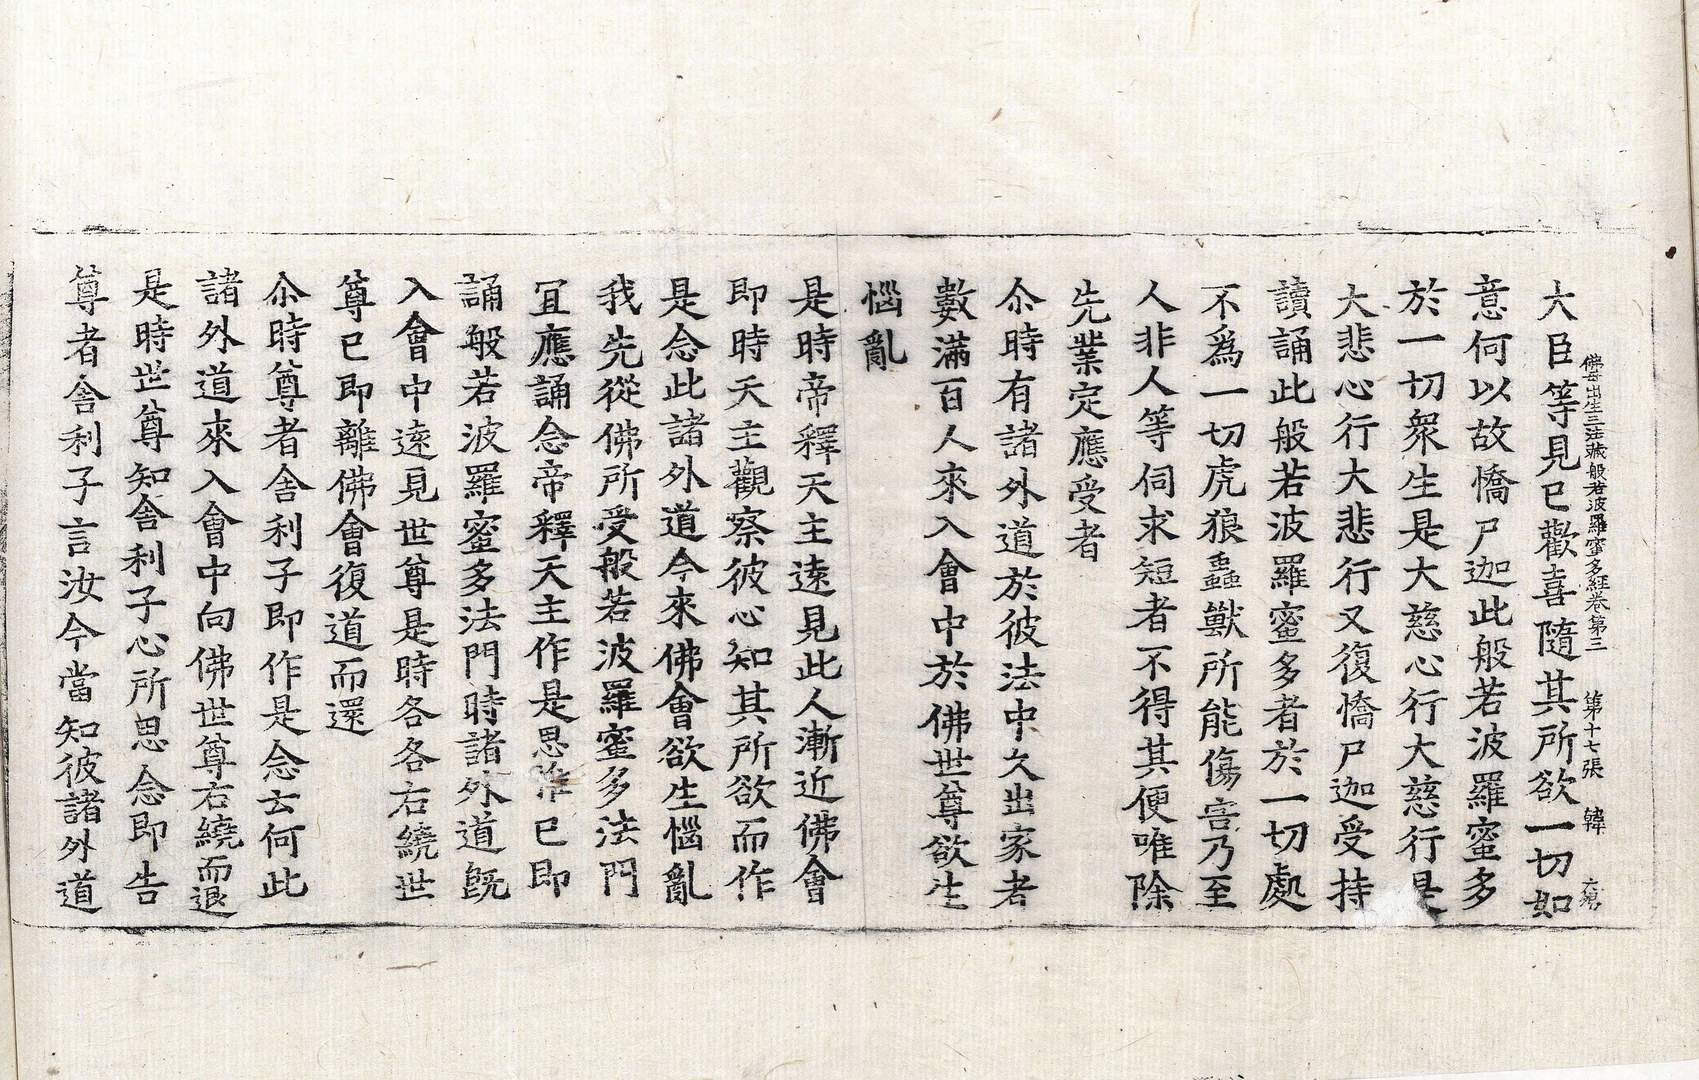 佛母出生三法藏般若波羅蜜多經卷第三 第十七張 韓
大臣等見已歡喜隨其所欲一切如
意何以故憍尸迦此般若波羅蜜多
於一切衆生是大慈心行大慈行是
大悲心行大悲行又復憍尸迦受持
讀誦此般若波羅蜜多者於一切處
不爲一切虎狼蟲獸所能傷害乃至
人非人等伺求短者不得其便唯除
先業定應受者
尒時有諸外道於彼法中久出家者
數滿百人來入會中於佛世尊欲生
惱亂
是時帝釋天主遠見此人漸近佛會
即時天主觀察彼心知其所欲而作
是念此諸外道今來佛會欲生惱亂
我先從佛所受般若波羅蜜多法門
冝應誦念帝釋天主作是思惟已即
誦般若波羅蜜多法門時諸外道旣
入會中遠見世尊是時各各右繞世
尊已即離佛會復道而還
尒時尊者舍利子即作是念云何此
諸外道來入會中向佛世尊右繞而退
是時世尊知舍利子心所思念即告
尊者舍利子言汝今當知彼諸外道